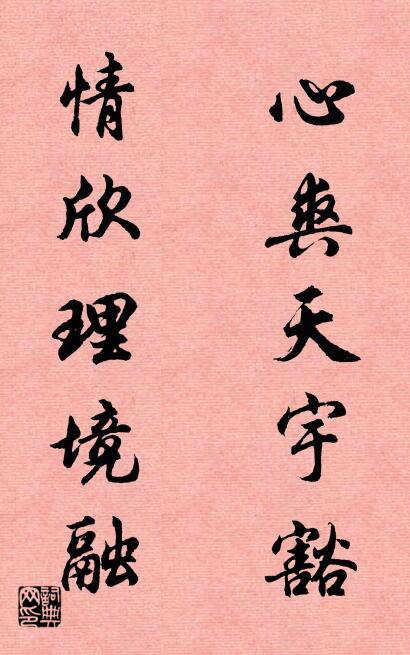 心與天宇豁
情欣理境融
詞典網印